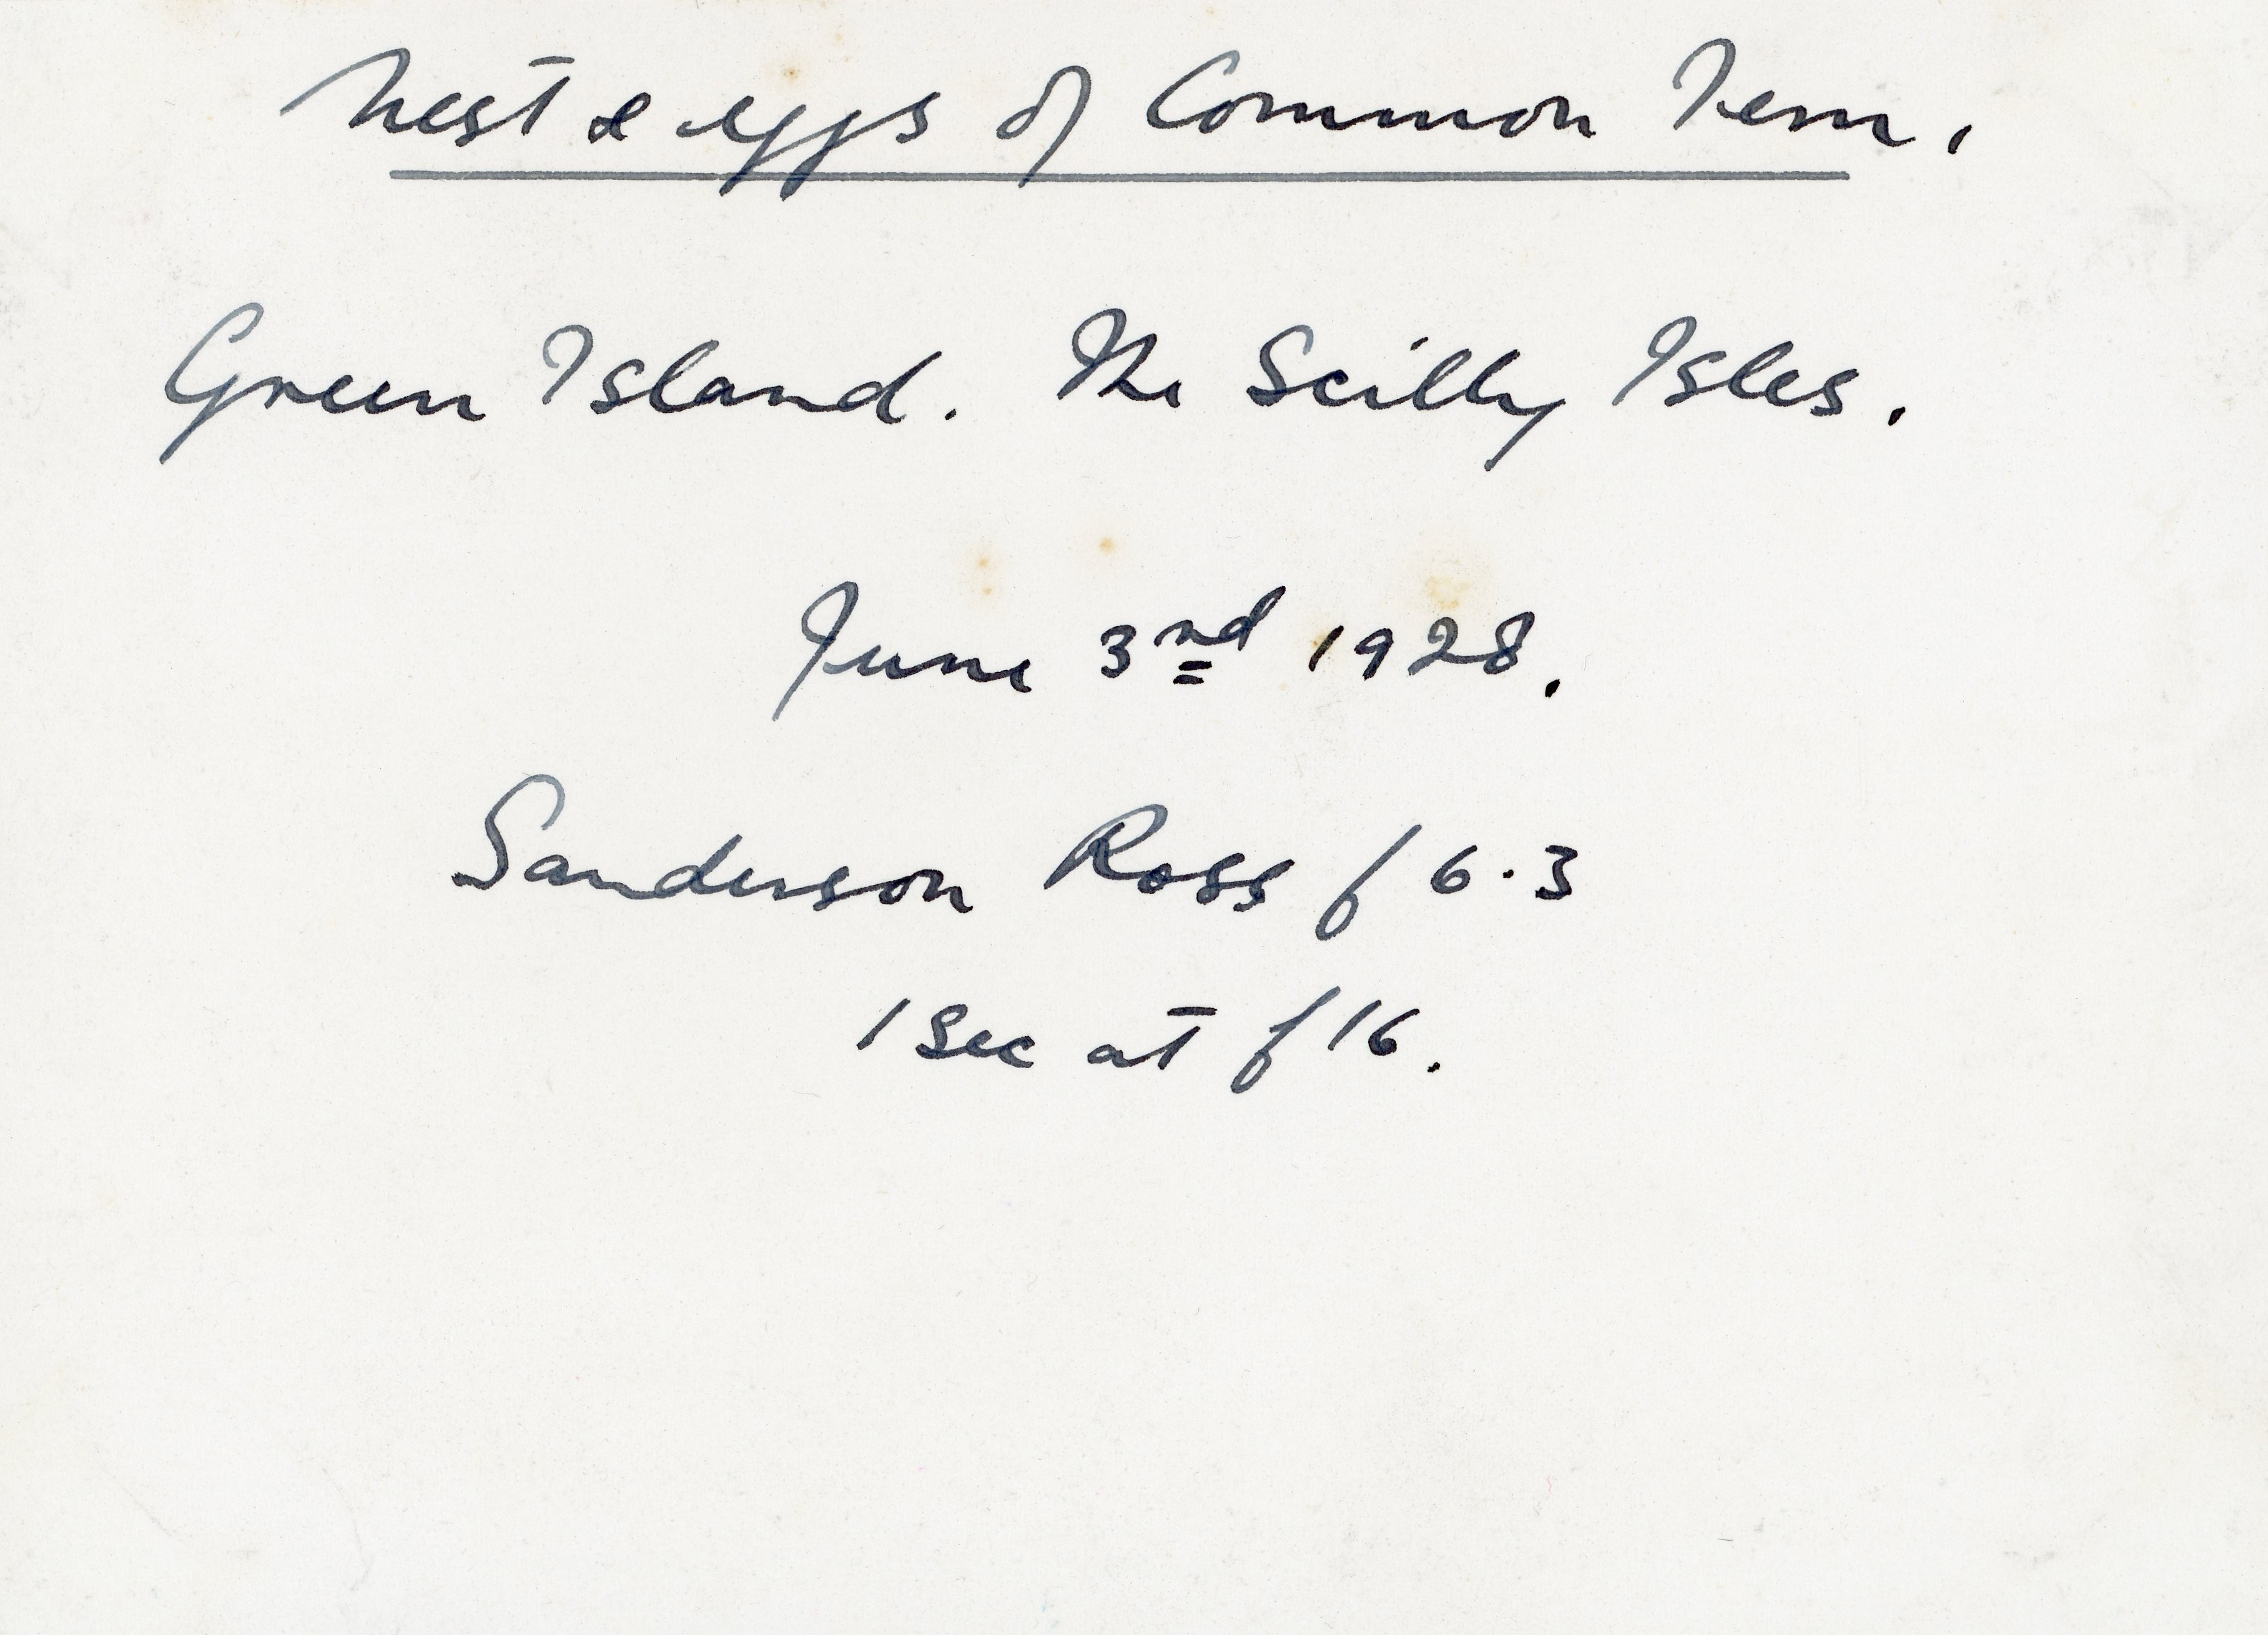 Nest & eggs of Common Tern.
Green Island. The Scilly Isles.
June 3nd 1928.
Sanderson Ross f 6.3
1 sec at f 16.